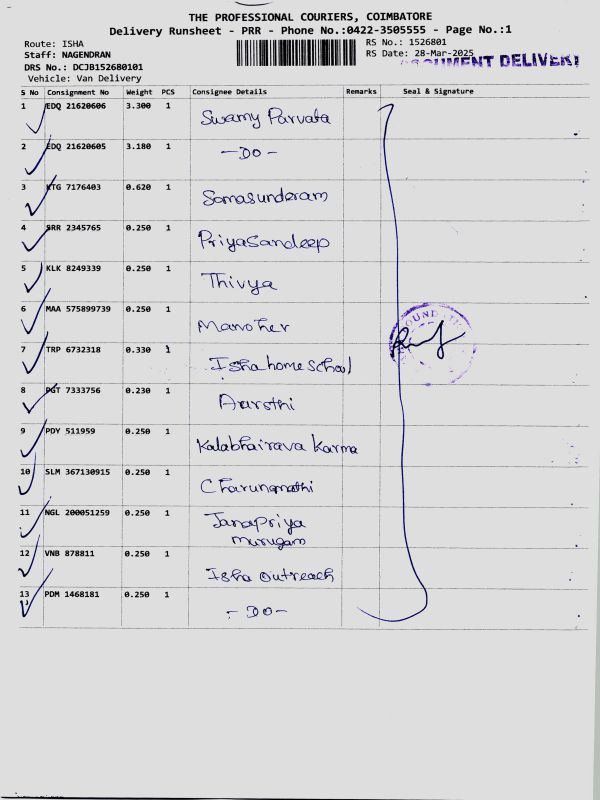 THE PROFESSIONAL COURIERS, COIMBATORE
Delivery Runsheet - PRR - Phone No.:0422-3505555 - Page No.:1
Route: ISHA
Staff: NAGENDRAN
DRS No.: DCJB152680101
Vehicle: Van Delivery
RS No.: 1526801
RS Date: 28-Mar-2025
DOCUMENT DELIVERY
S No Consignment No Weight PCS Consignee Details Remarks Seal & Signature
1 EDQ 21620606 3.300 1 Swamy Parvata
2 EDQ 21620605 3.180 1 -DO-
3 KTG 7176403 0.620 1 Somasunderam
4 SRR 2345765 0.250 1 PriyaSandeep
5 KLK 8249339 0.250 1 Thivya
6 MAA 575899739 0.250 1 Manoher
7 TRP 6732318 0.330 1 Isha home school
8 PGT 7333756 0.230 1
9 PDY 511959 0.250 1 Kalabhairava Karma
10 SLM 367130915 0.250 1 Charunmathi
11 NGL 200051259 0.250 1 Janapriya
Murugam
12 VNB 878811 0.250 1 Isha Outreach
13 PDM 1468181 0.250 1 -DO-